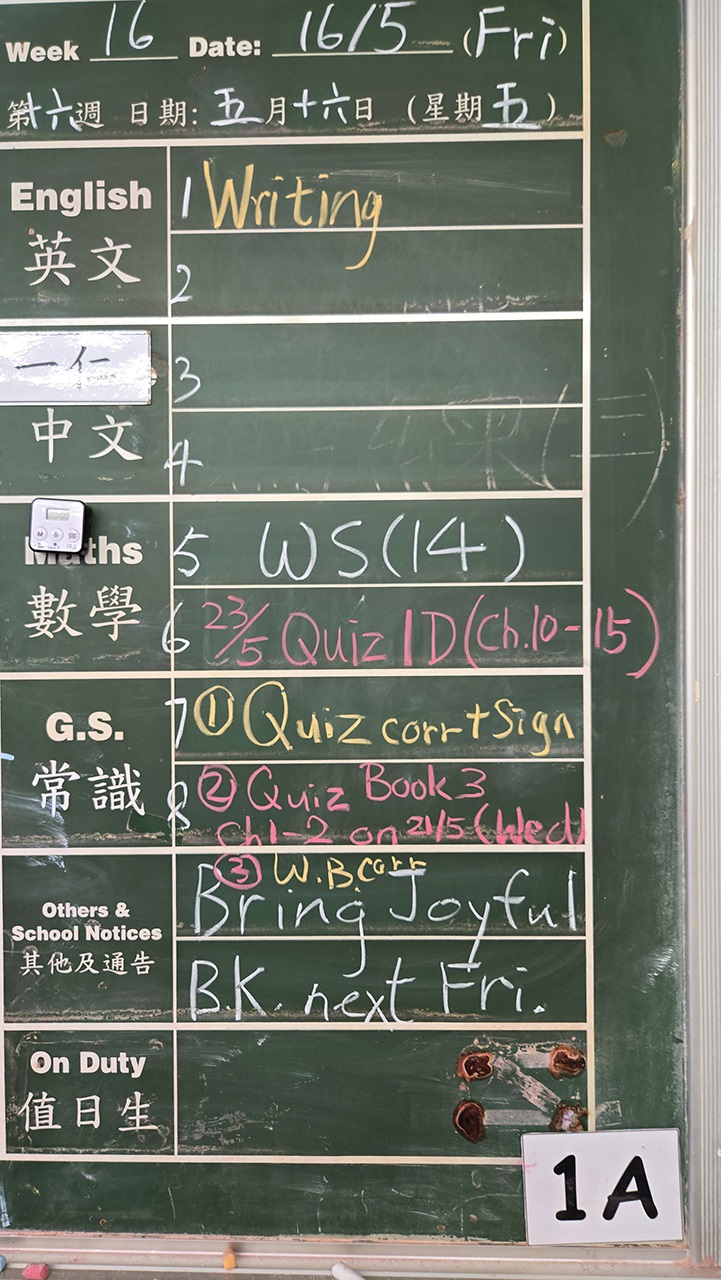 Week 16 Date: 16/5 (Fri)
第十六週 日期: 五月十六日 (星期五)
English
英文
1 Writing
2
一仁
中文
3
4
Maths
數學
5 WS(14)
6 23/5 Quiz 1D (Ch.10-15)
G.S.
常識
7 ① Quiz corr + Sign
8 ② Quiz Book 3
Ch1-2 on 21/5 (Wed)
③ W.B. corr
Others &
School Notices
其他及通告
Bring Joyful
BK. next Fri.
On Duty
值日生
1A